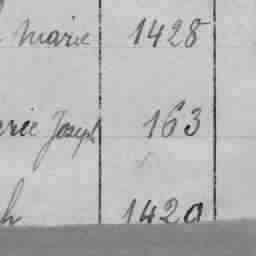 Marie 1428
erie Joseph 163
h 1420